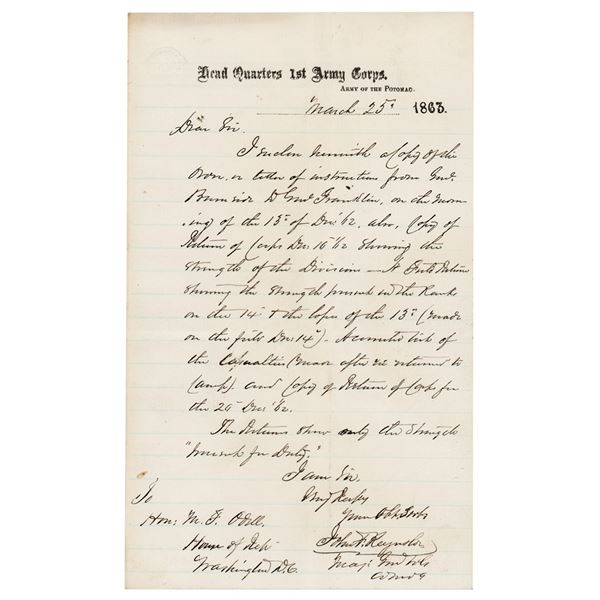 Head Quarters 1st Army Corps.
Army of the Potomac.
March 25" 1863.
Dear Sir.
I inclose herewith a Copy of the
or letter of instruction from Genl.
Burnside to Genl Franklin, on the morn-
ing of the 13" of Dec '62, also, Copy of
Return of Corps Dec 10" '62 showing the
strength of the Divisions – A Field Return
showing the strength present in the Ranks
on the 14" & the loss of the 13" (made
on the field Dec 14") – A corrected list of
the Casualties (made after we returned to
Camp) and Copy of Return of Corps for
the 20" Dec '62.
The Returns show only the Strength
"Present for Duty."
I am Sir.
Very Resply
Your Obt Servt
John F. Reynolds
Maj: Genl Vols
To
Hon: M. F. Odell.
House of Rep
Washington D.C.